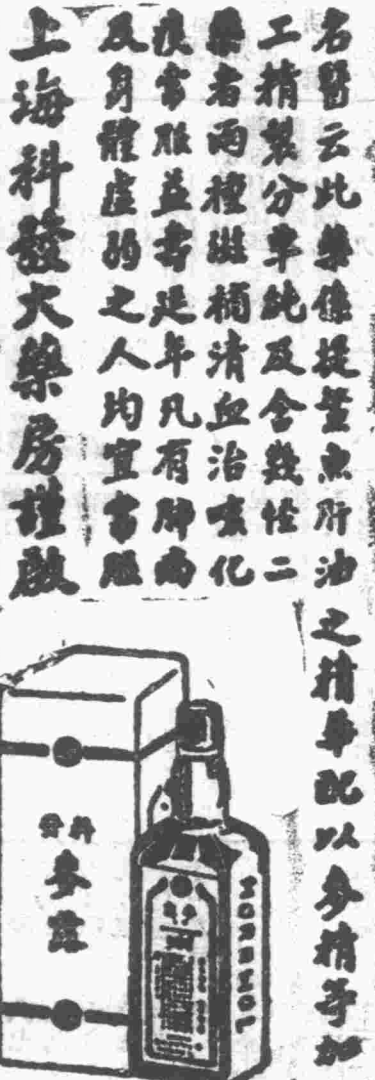 名醫云此藥係提鰵魚肝油之精華配以麥精等加
工精製分單純及含幾怪二
藥者兩種滋補清血治咳化
痰常服益壽延年凡有肺病
及身體虛弱之人均宜常服
上海科發大藥房謹啟
科發
麥露
MORRHUOL